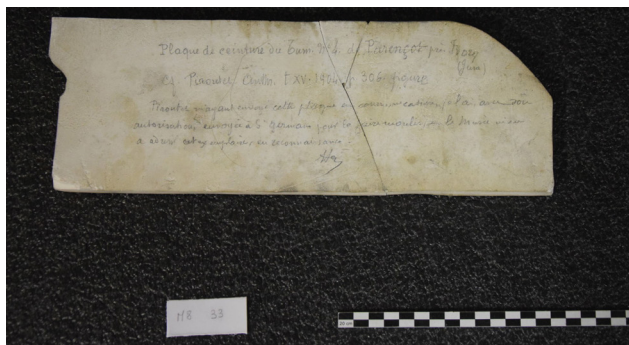 Plaque de ceinture du Tum. N° de près
Cf Piroutet Anthr. t XV. 1904 p. 306 figure
Piroutet m'ayant envoyé cette plaque en communication, je l'ai avec son
autorisation, envoyée à St Germain pour la faire mouler, et le Musée m'en
a donné cet exemplaire en reconnaissance
MB 33